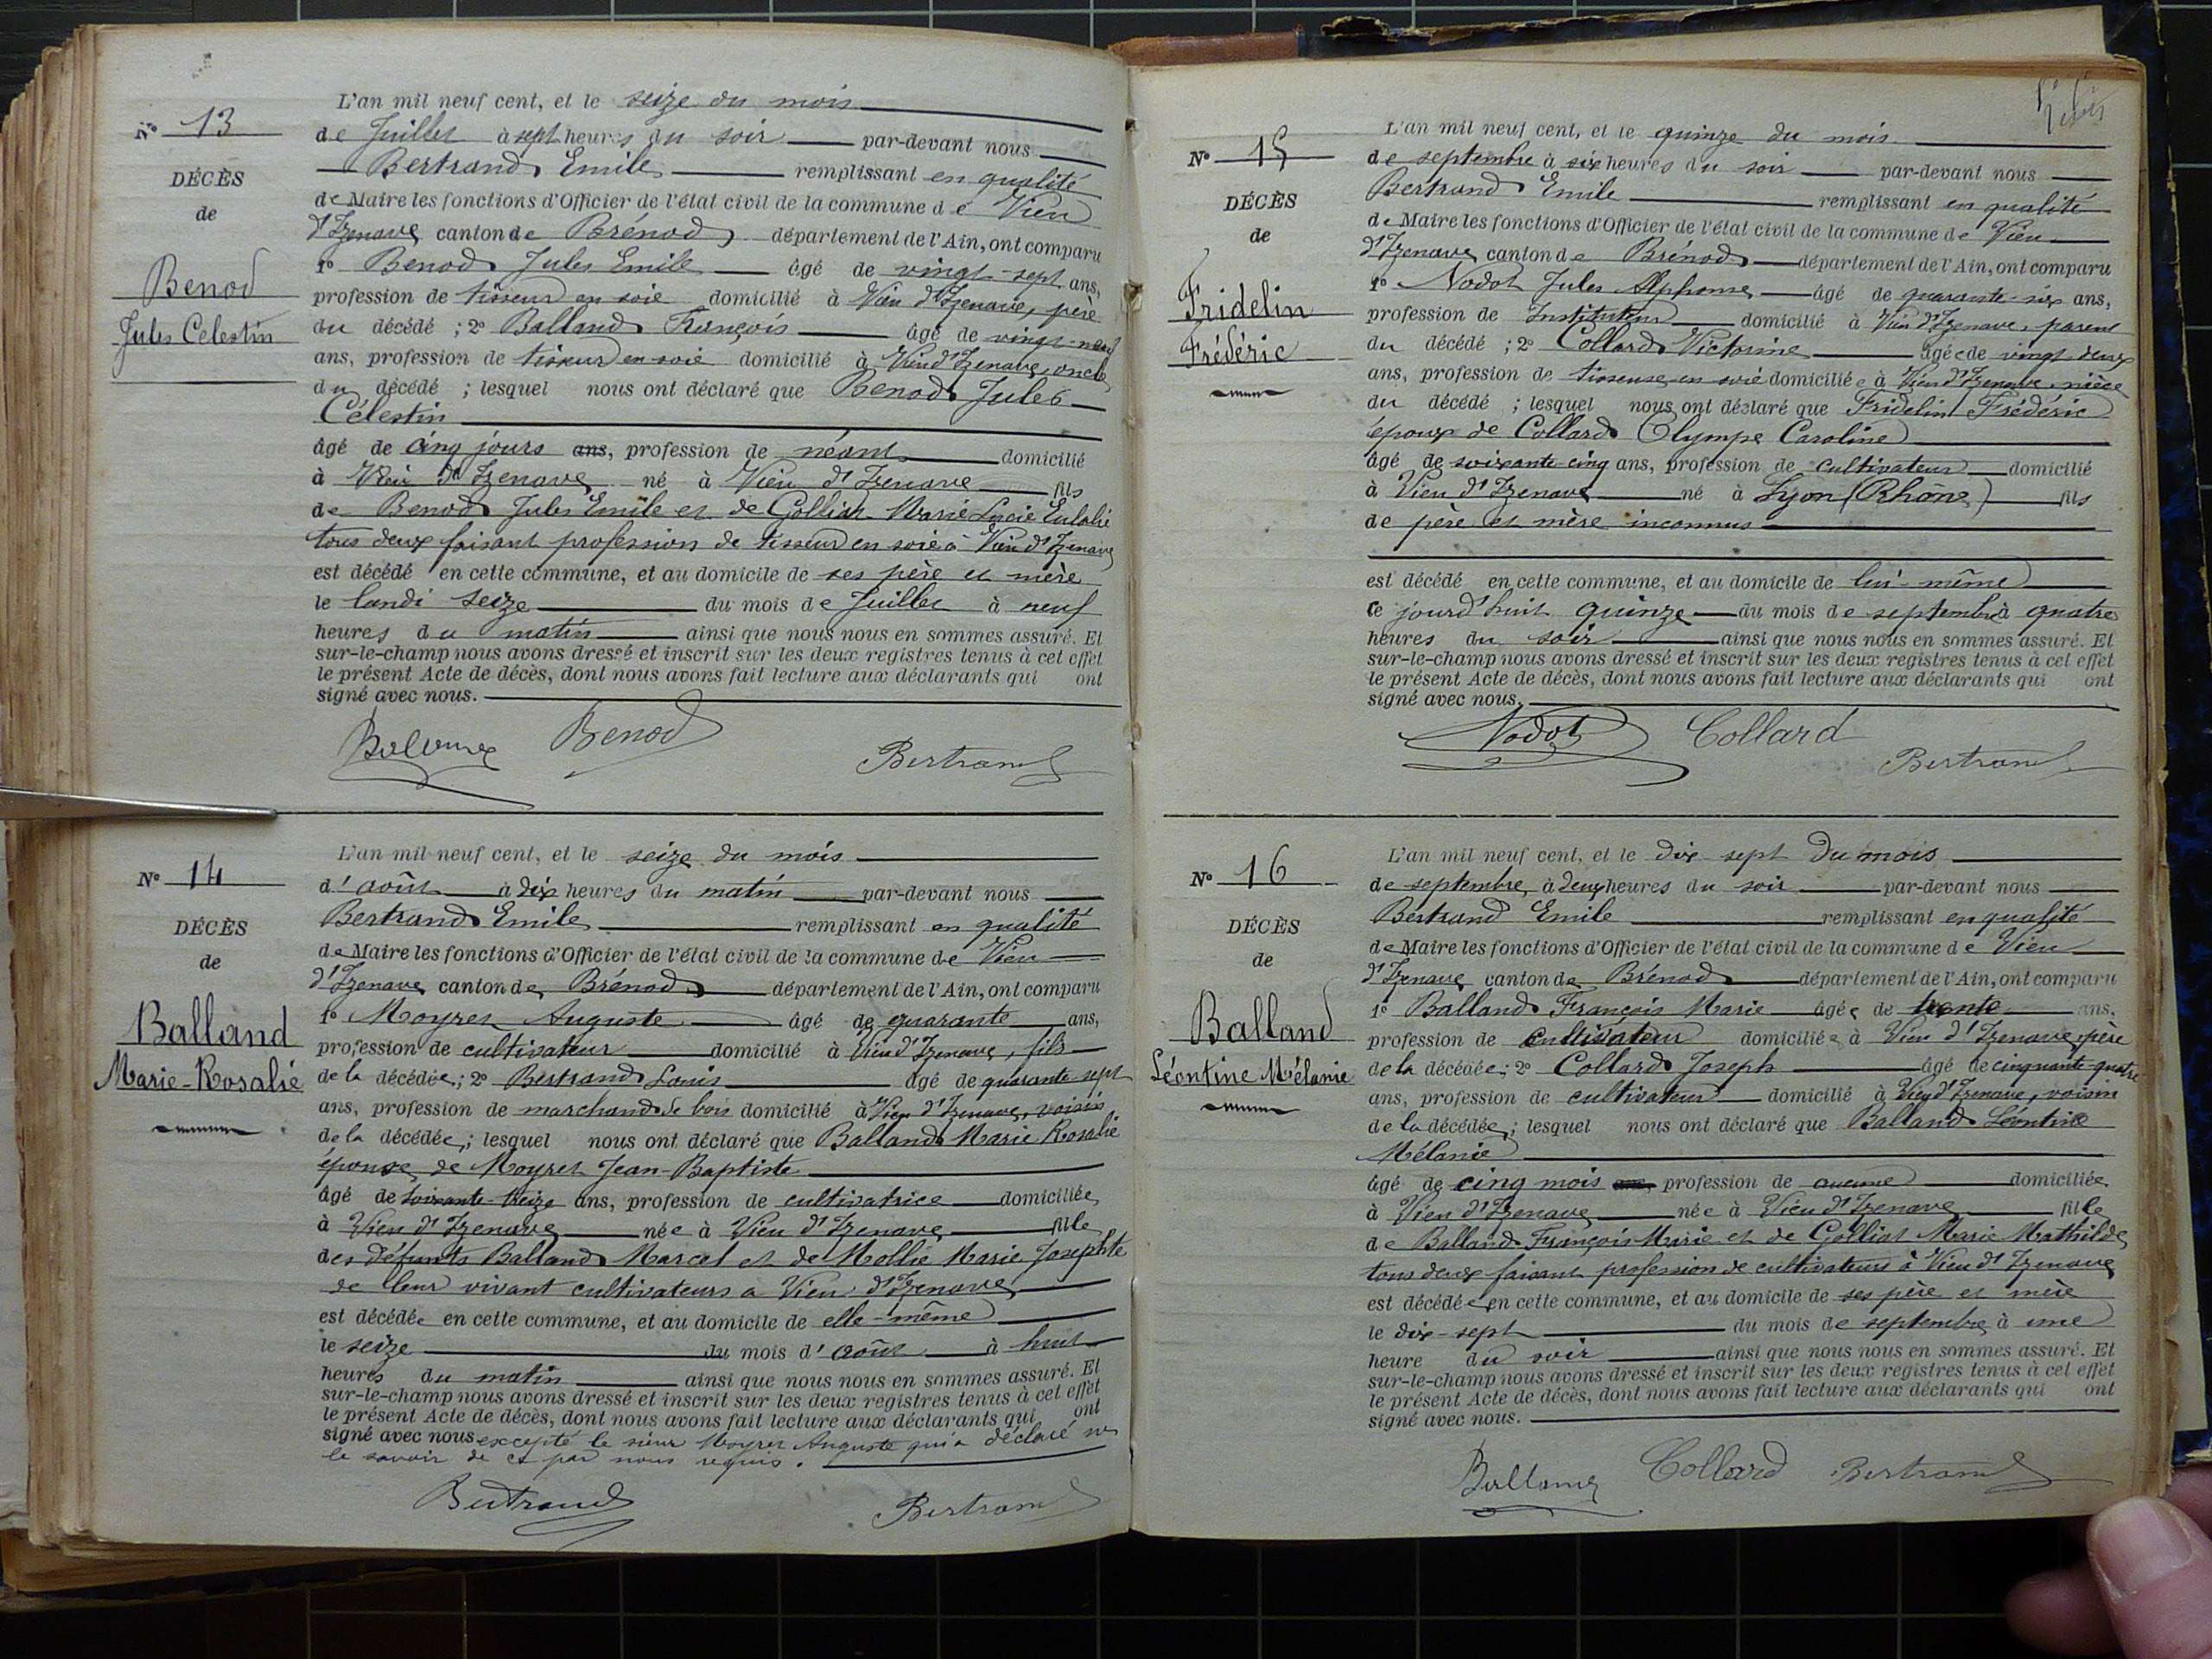 L'an mil neuf cent, et le seize du mois
N° 13
de Juillet à sept heures du soir par-devant nous
Bertrand Emile remplissant en qualité
DÉCÈS
de
de Maire les fonctions d'Officier de l'état civil de la commune de Vieu
d'Izenave canton de Brénod département de l'Ain, ont comparu
Benod
Jules Celestin
1° Benod Jules Emile âgé de vingt-sept ans,
profession de tisseur en soie domicilié à Vieu d'Izenave, père
du décédé ; 2° Balland François âgé de vingt-neuf
ans, profession de tisseur en soie domicilié à Vieu d'Izenave, oncle
du décédé ; lesquel nous ont déclaré que Benod Jules
Célestin
âgé de cinq jours ans, profession de néant domicilié
à Vieu d'Izenave né à Vieu d'Izenave fils
de Benod Jules Emile et de Golliat Marie Lucie Eulalie
tous deux faisant profession de tisseur en soie à Vieu d'Izenave
est décédé en cette commune, et au domicile de ses père et mère
le lundi seize du mois de Juillet à neuf
heures du matin ainsi que nous nous en sommes assuré. Et
sur-le-champ nous avons dressé et inscrit sur les deux registres tenus à cet effet
le présent Acte de décès, dont nous avons fait lecture aux déclarants qui ont
signé avec nous.
Benod Bertrand
L'an mil neuf cent, et le seize du mois
N° 14
d'août à dix heures du matin par-devant nous
Bertrand Emile remplissant en qualité
DÉCÈS
de
de Maire les fonctions d'Officier de l'état civil de la commune de Vieu
d'Izenave canton de Brénod département de l'Ain, ont comparu
Balland
Marie-Rosalie
1° Moyret Auguste âgé de quarante ans,
profession de cultivateur domicilié à Vieu d'Izenave, fils
de la décédée ; 2° Bertrand Louis âgé de quarante-sept
ans, profession de marchand de bois domicilié à Vieu d'Izenave, voisin
de la décédée ; lesquel nous ont déclaré que Balland Marie Rosalie
épouse de Moyret Jean-Baptiste
âgé de soixante-treize ans, profession de cultivatrice domiciliée
à Vieu d'Izenave née à Vieu d'Izenave fille
des défunts Balland Marcel et de Mollie Marie Josephte
de leur vivant cultivateurs a Vieu d'Izenave
est décédée en cette commune, et au domicile de elle-même
le seize du mois d'août à huit
heures du matin ainsi que nous nous en sommes assuré. Et
sur-le-champ nous avons dressé et inscrit sur les deux registres tenus à cet effet
le présent Acte de décès, dont nous avons fait lecture aux déclarants qui ont
signé avec nous excepté le sieur Moyret Auguste qui a déclaré ne
le savoir de ce par nous requis.
Bertrand Bertrand
L'an mil neuf cent, et le quinze du mois
N° 15
de septembre à six heures du soir par-devant nous
Bertrand Emile remplissant en qualité
DÉCÈS
de
de Maire les fonctions d'Officier de l'état civil de la commune de Vieu
d'Izenave canton de Brénod département de l'Ain, ont comparu
Fridelin
Frédéric
1° Nodot Jules Alphonse âgé de quarante-six ans,
profession de Instituteur domicilié à Vieu d'Izenave, parent
du décédé ; 2° Collard Victorine âgée de vingt-deux
ans, profession de tisseuse en soie domiciliée à Vieu d'Izenave, nièce
du décédé ; lesquel nous ont déclaré que Fridelin Frédéric
époux de Collard Olympe Caroline
âgé de soixante-cinq ans, profession de cultivateur domicilié
à Vieu d'Izenave né à Lyon (Rhône) fils
de père et mère inconnus
est décédé en cette commune, et au domicile de lui-même
ce jourd'huit quinze du mois de septembre à quatre
heures du soir ainsi que nous nous en sommes assuré. Et
sur-le-champ nous avons dressé et inscrit sur les deux registres tenus à cet effet
le présent Acte de décès, dont nous avons fait lecture aux déclarants qui ont
signé avec nous.
Nodot Collard Bertrand
L'an mil neuf cent, et le dix-sept du mois
N° 16
de septembre, à deux heures du soir par-devant nous
Bertrand Emile remplissant en qualité
DÉCÈS
de
de Maire les fonctions d'Officier de l'état civil de la commune de Vieu
d'Izenave canton de Brénod département de l'Ain, ont comparu
Balland
Léontine Mélanie
1° Balland François Marie âgé de trente ans,
profession de cultivateur domicilié à Vieu d'Izenave, père
de la décédée ; 2° Collard Joseph âgé de cinquante-quatre
ans, profession de cultivateur domicilié à Vieu d'Izenave, voisin
de la décédée ; lesquel nous ont déclaré que Balland Léontine
Mélanie
âgé de cinq mois ans, profession de aucune domiciliée
à Vieu d'Izenave née à Vieu d'Izenave fille
de Balland François Marie et de Golliat Marie Mathilde
tous deux faisant profession de cultivateurs à Vieu d'Izenave
est décédée en cette commune, et au domicile de ses père et mère
le dix-sept du mois de septembre à une
heure du soir ainsi que nous nous en sommes assuré. Et
sur-le-champ nous avons dressé et inscrit sur les deux registres tenus à cet effet
le présent Acte de décès, dont nous avons fait lecture aux déclarants qui ont
signé avec nous.
Balland Collard Bertrand